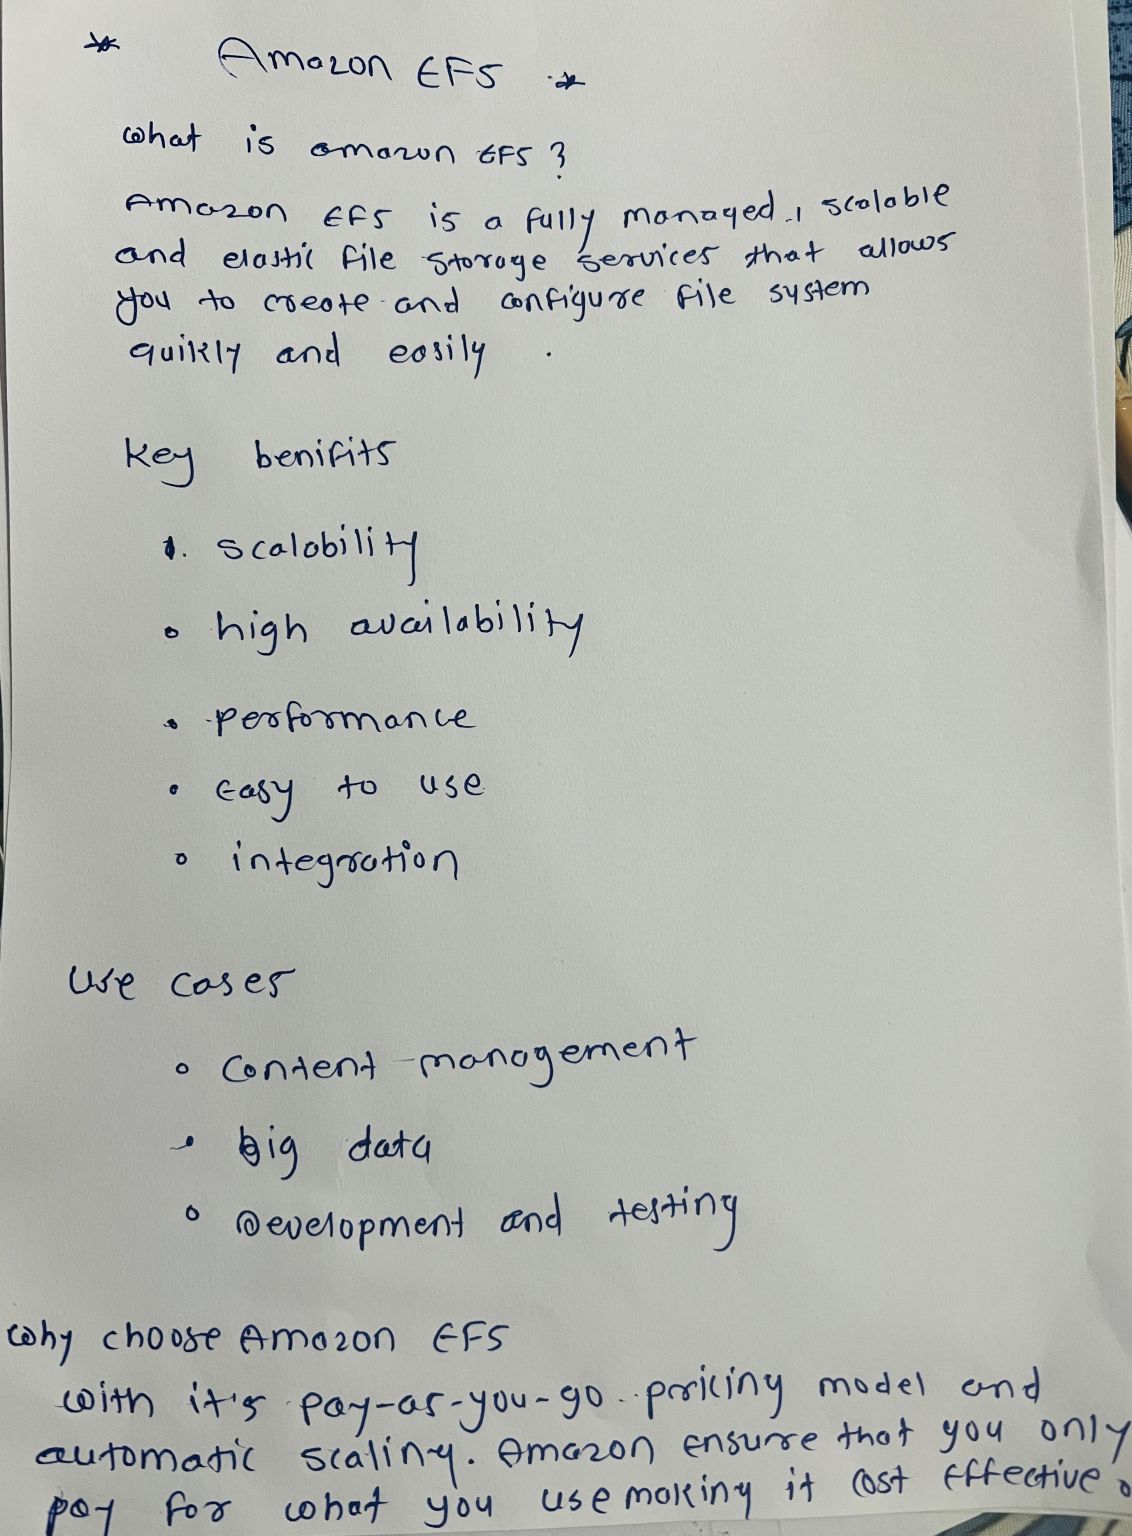 * Amazon EFS *
what is amazon EFS ?
Amazon EFS is a fully managed, scalable
and elastic file storage services that allows
you to create and configure file system
quikly and easily .
key benifits
1. scalability
• high availability
• performance
• Easy to use
• integration
use cases
• content management
• big data
• Development and testing
why choose Amazon EFS
with it's pay-as-you-go pricing model and
automatic scaling. Amazon ensure that you only
pay for what you use making it cost effective.